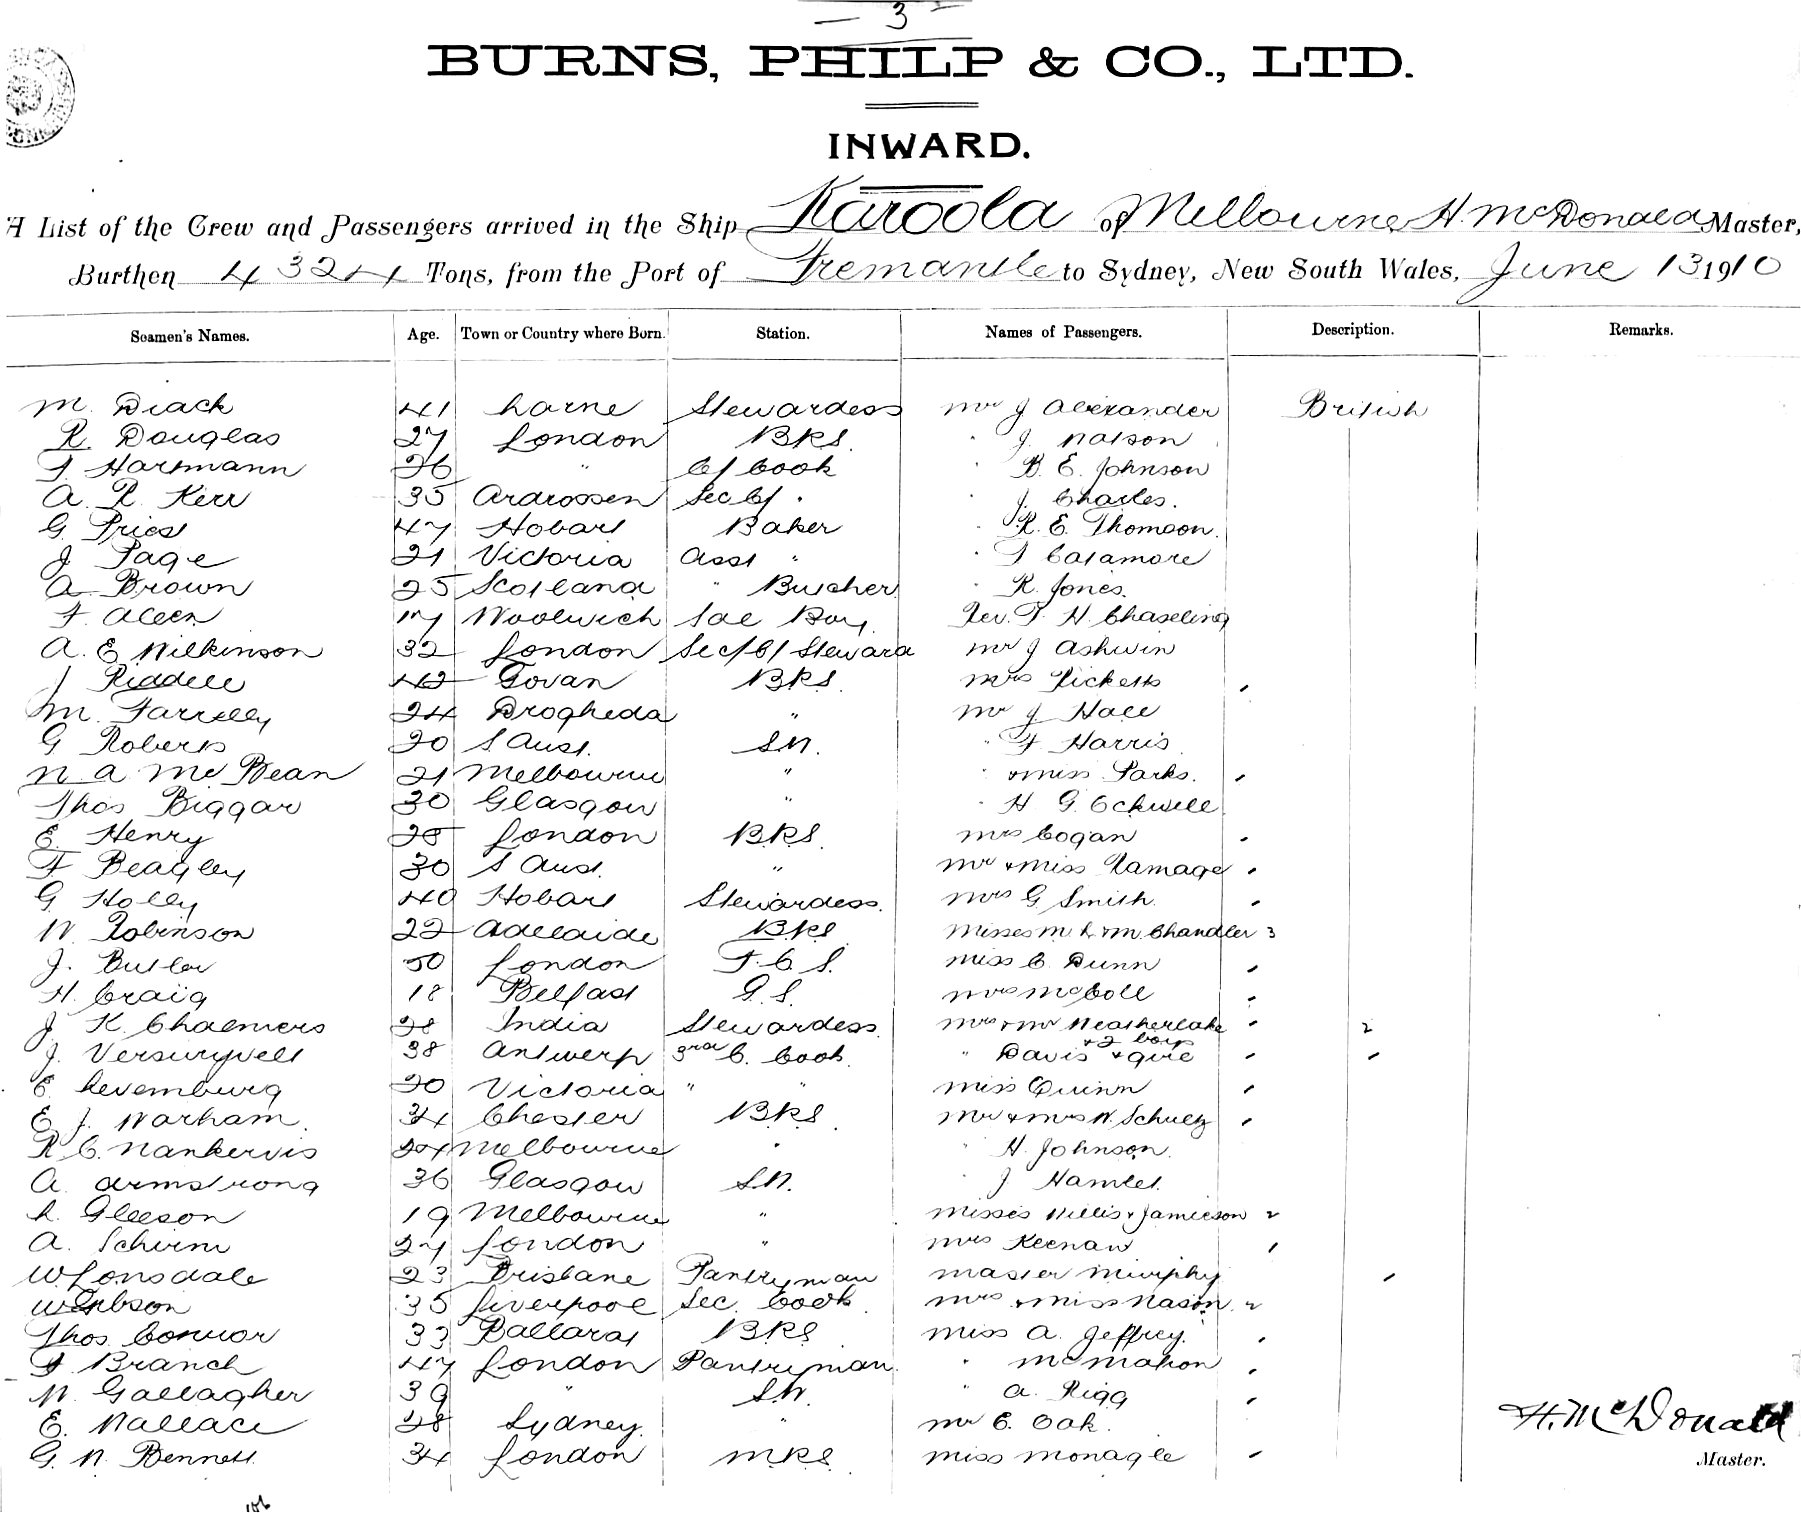 — 3 —
BURNS, PHILP & CO., LTD.
INWARD.
A List of the Crew and Passengers arrived in the Ship Karoola of Melbourne H. McDonald Master,
Burthen 4324 Tons, from the Port of Fremantle to Sydney, New South Wales, June 13 1910
Seamen's Names. Age. Town or Country where Born. Station. Names of Passengers. Description. Remarks.
M. Diack 41 Larne Stewardess Mr J Alexander British
R. Douglas 27 London BKS. " J. Watson
F. Hartmann 26 " C/ Cook " B. E. Johnson
A. R. Kerr 35 Ardrossen Sec C/ " " J. Charles.
G Priest 47 Hobart Baker " R. E. Thomson.
J Page 21 Victoria Asst " " F Catamore
A Brown 25 Scotland " Butcher " R. Jones.
F. Allen 17 Woolwich Sae Boy. Rev. F. H. Chaseling
A. E Wilkinson 32 London Sec/C/ Steward Mr J Ashwin
J Riddell 42 Govan BKS. Mrs Ricketts ,
M. Farrelly 24 Drogheda " Mr J Hall
G Roberts 20 S Aust. SW. " F Harris
N A McBean 21 Melbourne " " & Miss Parks. ,
Thos Biggar 30 Glasgow " " H G. Ockwell
E. Henry 28 London BKS. Mrs Cogan ,
F Beagley 30 S Aust. " Mr & Miss Ramage ,
G. Holly 40 Hobart Stewardess. Mrs G. Smith. ,
W. Robinson 22 Adelaide BKS Misses M. L & M. Chandler 3
J. Butler 50 London F. C S. Miss C. Dunn ,
H. Craig 18 Belfast G. S. Mrs McColl ,
J K. Chalmers 28 India Stewardess. Mrs & Mr Weatherlake , 2
& 2 boys
J. Versuryvelt 38 Antwerp 3rd C. Cook. " Davis & girl , ,
E Levemburg 20 Victoria " " Miss Quinn ,
E J. Warham. 34 Chester BKS Mr & Mrs W. Schultz ,
R C. Nankervis 24 Melbourne " " H. Johnson.
A. Armstrong 36 Glasgow SW. " J Hamlet.
L. Gleeson 19 Melbourne " Misses Willis & Jamieson 2
A. Schirm 27 London " Mrs Keenan ,
W. Lonsdale 23 Brisbane Pantryman Master Murphy ,
W Gibson 35 Liverpool Sec. Cook Mrs & Miss Nason. 2
Thos Connor 33 Ballarat BKS Miss A. Jeffrey. ,
F Branch 47 London Pantryman. " McMahon ,
W. Gallagher 39 " SW. " A. Rigg ,
E. Wallace 28 Sydney. " Mr E. Oak.
G. W. Bennett. 34 London MRS. Miss Monagle ,
H. McDonald
Master.